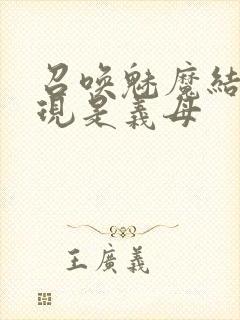 召唤魅魔結
現是義母
王廣義